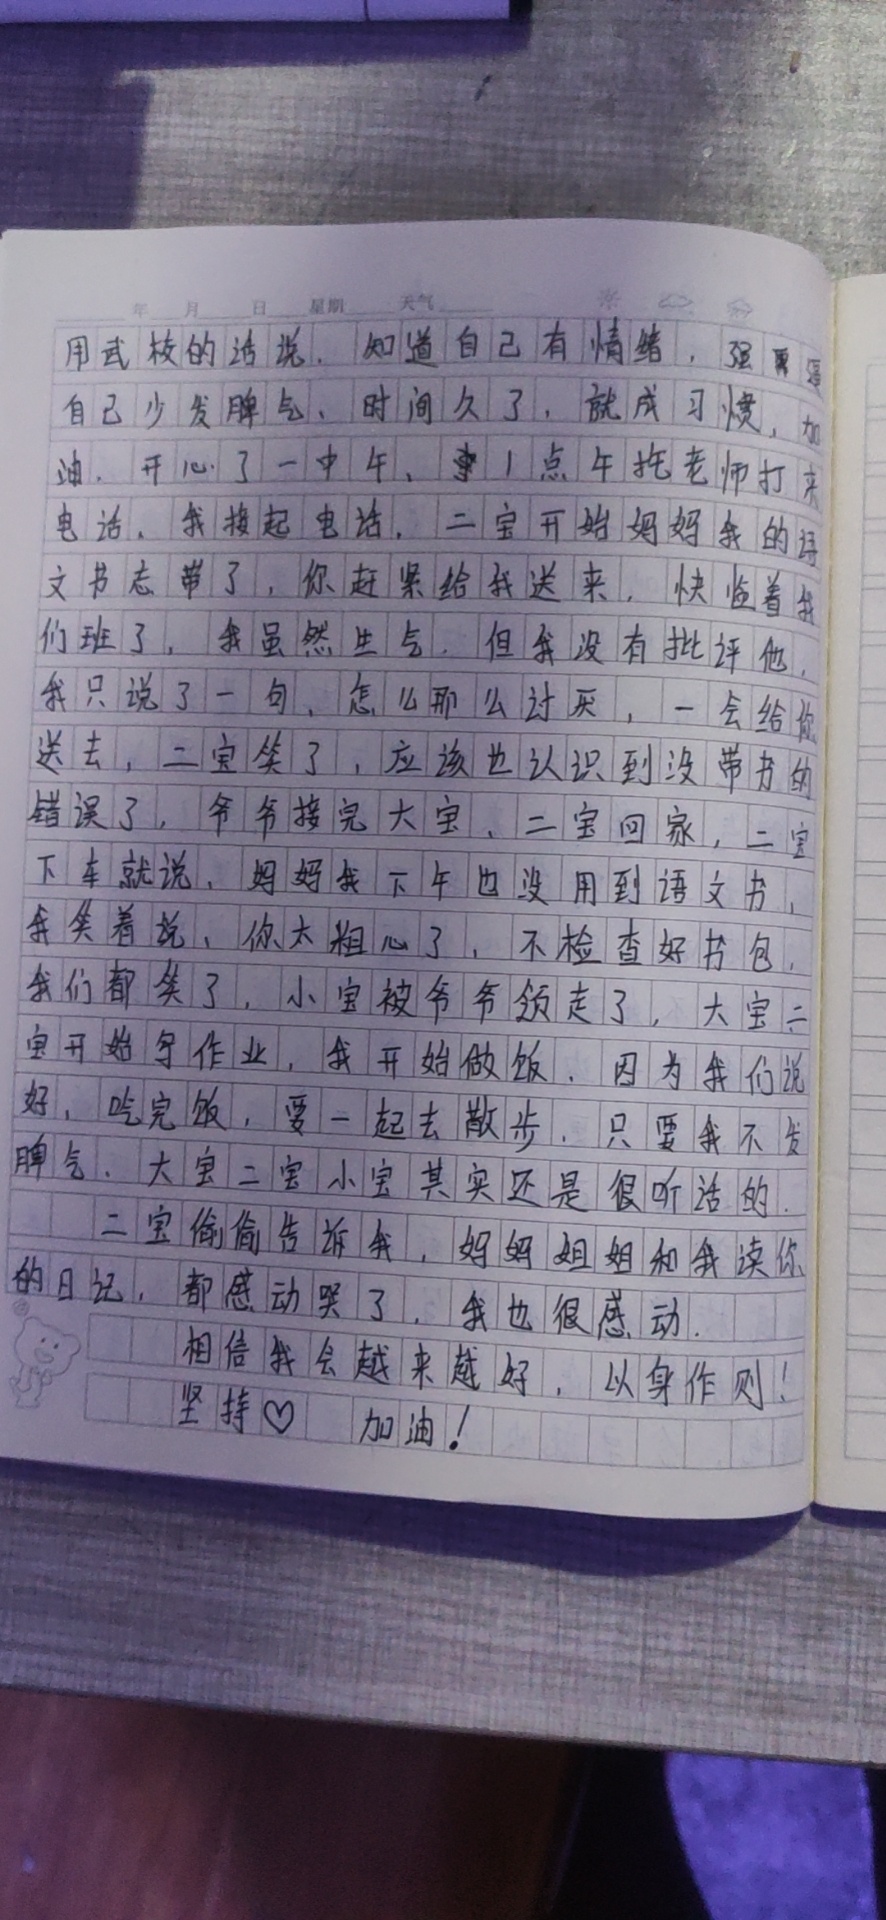 年 月 日 星期 天气
用武校的话说.知道自己有情绪,强
自己少发脾气、时间久了,就成习惯,加
油.开心了一中午、1点午托老师打来
电话.我接起电话.二宝开始妈妈我的语
文书忘带了,你赶紧给我送来.快临着我
们班了.我虽然生气.但我没有批评他.
我只说了一句、怎么那么讨厌,一会给你
送去,二宝笑了,应该也认识到没带书的
错误了,爷爷接完大宝、二宝回家,二宝
下车就说、妈妈我下午也没用到语文书,
我笑着说、你太粗心了,不检查好书包.
我们都笑了.小宝被爷爷领走了,大宝二
宝开始写作业,我开始做饭.因为我们说
好,吃完饭,要一起去散步.只要我不发
脾气.大宝二宝小宝其实还是很听话的.
二宝偷偷告诉我,妈妈姐姐和我读你
的日记,都感动哭了.我也很感动.
相信我会越来越好,以身作则!
坚持♡ 加油!